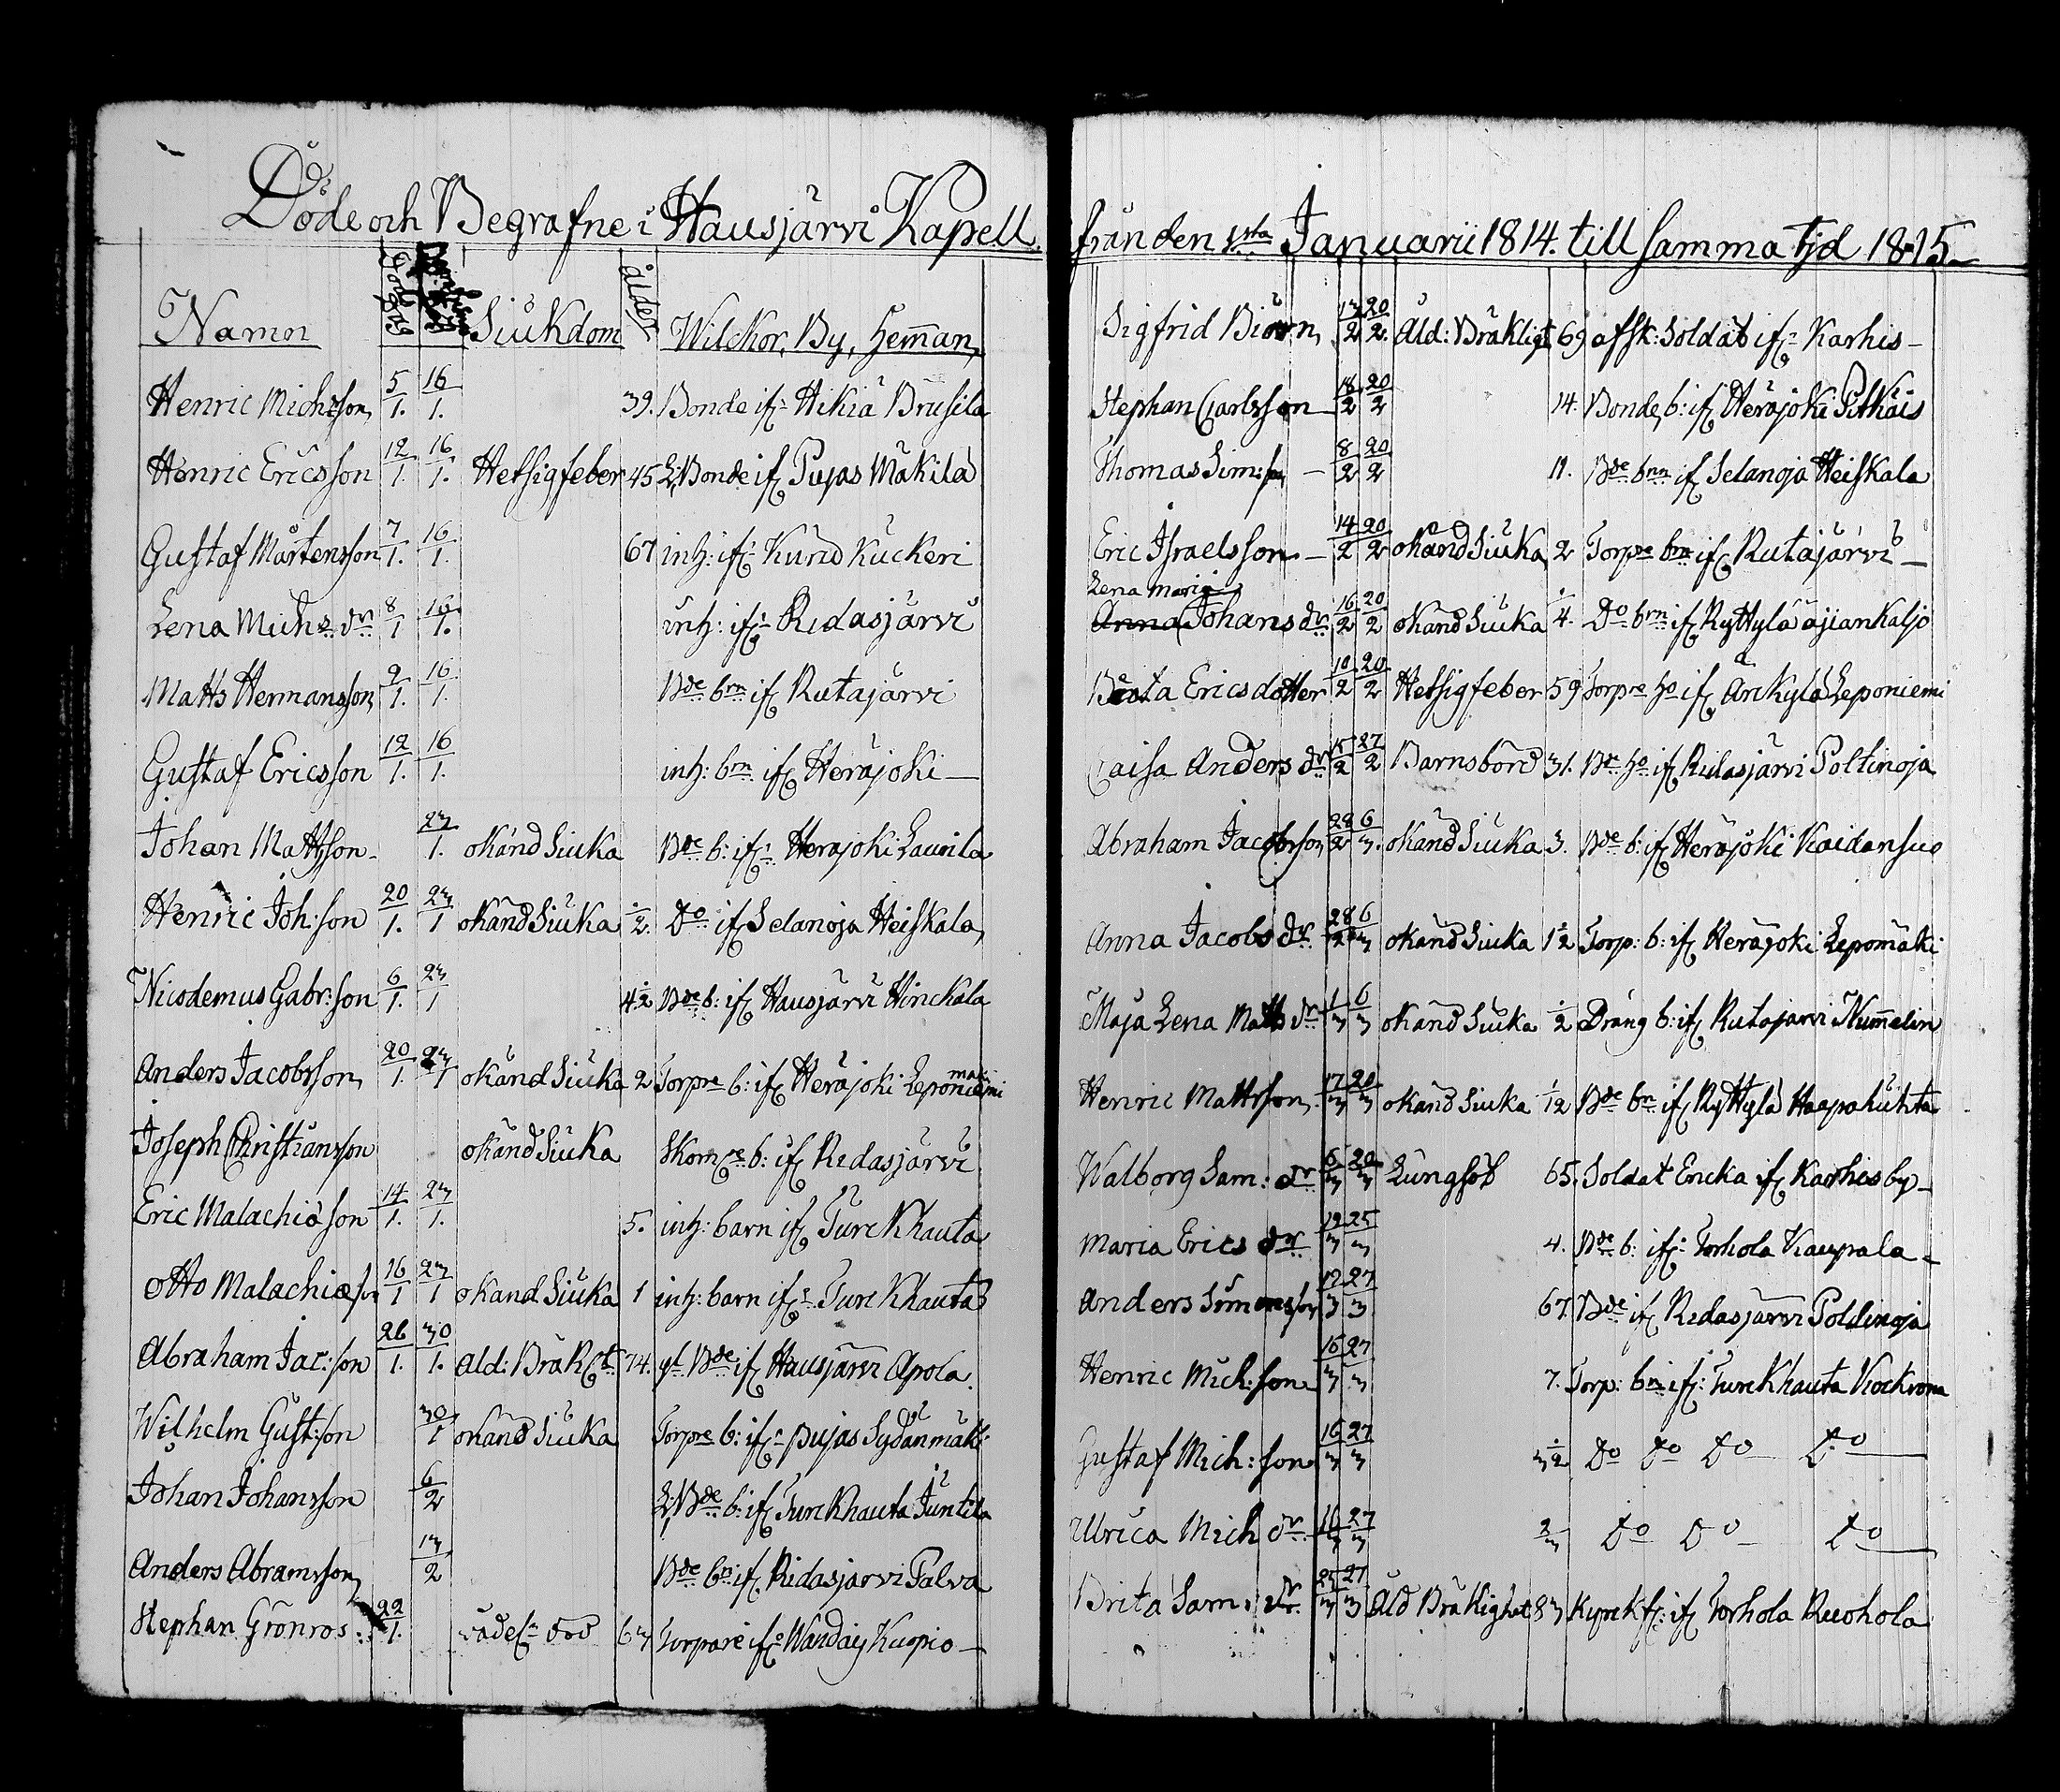 Döde och Begrafne i Hausjärvi Kapell
Namn Död dag Siukdom ålder Wilckor, By, Hemman,
Henric Michsson, 5/1. 16/1. 39. Bonde if: Hikiä Brusila
Henric Ericsson 12/1. 16/1. Hetsigfeber 45 L: Bonde if Pujas Mäkilä
Gustaf Mårtensson 7/1. 16/1. 67 inh: if: Kurio Kuckeri
Lena Michs dr 8/1 16/1. inh: if: Ridasjärvi
Matts Hermansson, 9/1. 16/1. Bde brn if Rutajärvi
Gustaf Ericsson 12/1. 16/1. inh: brn if Heräjoki —
Johan Mattsson - 23/1. okänd Siuka Bde b: if: Herajoki Laurila
Henric Joh:son 20/1. 23/1 okänd Siuka 1/2 Do if Selanoja Heiskala
Nicodemus Gabr:son 6/1. 23/1 4 1/2 Bde b: if Hausjärvi Hinckala
Anders Jacobsson, 20/1. 23/1 okänd Siuka 2 Torpre b: if Heräjoki Leponiemi mäki
Joseph Christiansson okänd Siuka Skom b: if Ridasjärvi
Eric Malachiæson 14/1. 23/1. 5. inh: barn if Turckhauta
Otto Malachiæson 16/1 23/1 okänd Siuka 1 inh: barn if: Turckhauta
Abraham Jac:son 26/1. 30/1. Ald: Bräk 74. gl. Bde if Hausjärvi Apola
Wilhelm Gust:son 30/1 okänd Siuka Torpre b: if: pujas Sydänmäki
Johan Johansson 6/2 L: Bde b: if Turckhauta Juntila
Anders Abramsson, 13/2 Bde bn if Ridasjarvi Palva
Stephan Grönros 22/1. våde död 63 Torpare if Kuopio —
från den 1sta Januarii 1814. till samma tjd 1815 –
Sigfrid Biörn, 13/2 20/2. Ald: Bräkligt 69 afsk: Soldat if: Karhis –
Stephan Carlsson 18/2 20/2 14. Bonde, b: if Heräjoki Pitkäis
Thomas Sim:son – 8/2 20/2 11. Bde brn if Selanoja Heiskala
Eric Israelsson – 14/2 20/2 okänd Siuka 2 Torpre brn if Rutajärvi –
Lena Maria
Anna Johans dr 16/2 20/2 okänd Siuka 4. Do brn if Ryttylä äjiankaljo
Beata Ericsdotter 10/2 20/2 Hetsigfeber 59 Torpre ho if Arkylä Leponiemi
Caisa Anders dr 15/2 27/2 Barnsbörd 31. Br ho if Ridasjärvi Poltinoja
Abraham Jacobsson 28/2 6/3. okänd Siuka 3. Bde b: if Heräjoki Kaidansuo
Anna Jacobs dr 28/2 6/3 okänd Siuka 1 1/2 Torp: b: if Heräjoki Lepomäki
Maja Lena Matts dr 1/3 6/3 okänd Siuka 1/2 Dräng b: if Rutajarvi Nummelin
Henric Mattsson, 17/3 20/3 okänd Siuka 1/12 Bde bn if Ryttylä Haapahuhta
Walborg Sam: dr 6/3 20/3 Lungsot 65. Soldat Encka if Karhis by –
Maria Erics dr 19/3 25/3 4. Bde b: if: Torhola Kaupala –
Anders Simonsson 12/3 27/3 67. Bde if Ridasjärvi Poldinoja
Henric Mich:son 16/3 27/3 7. Torp: bn if: Turckhauta Kockroma
Gustaf Mich:son 16/3 27/3 3 1/2 Do Do Do Do
Ulrica Mich dr 16/3 27/3 2/3 Do Do Do
Brita Sam: dr. 25/3 27/3 Åld Bräklighet 83 Kyrckf: if Torhola Ruohola